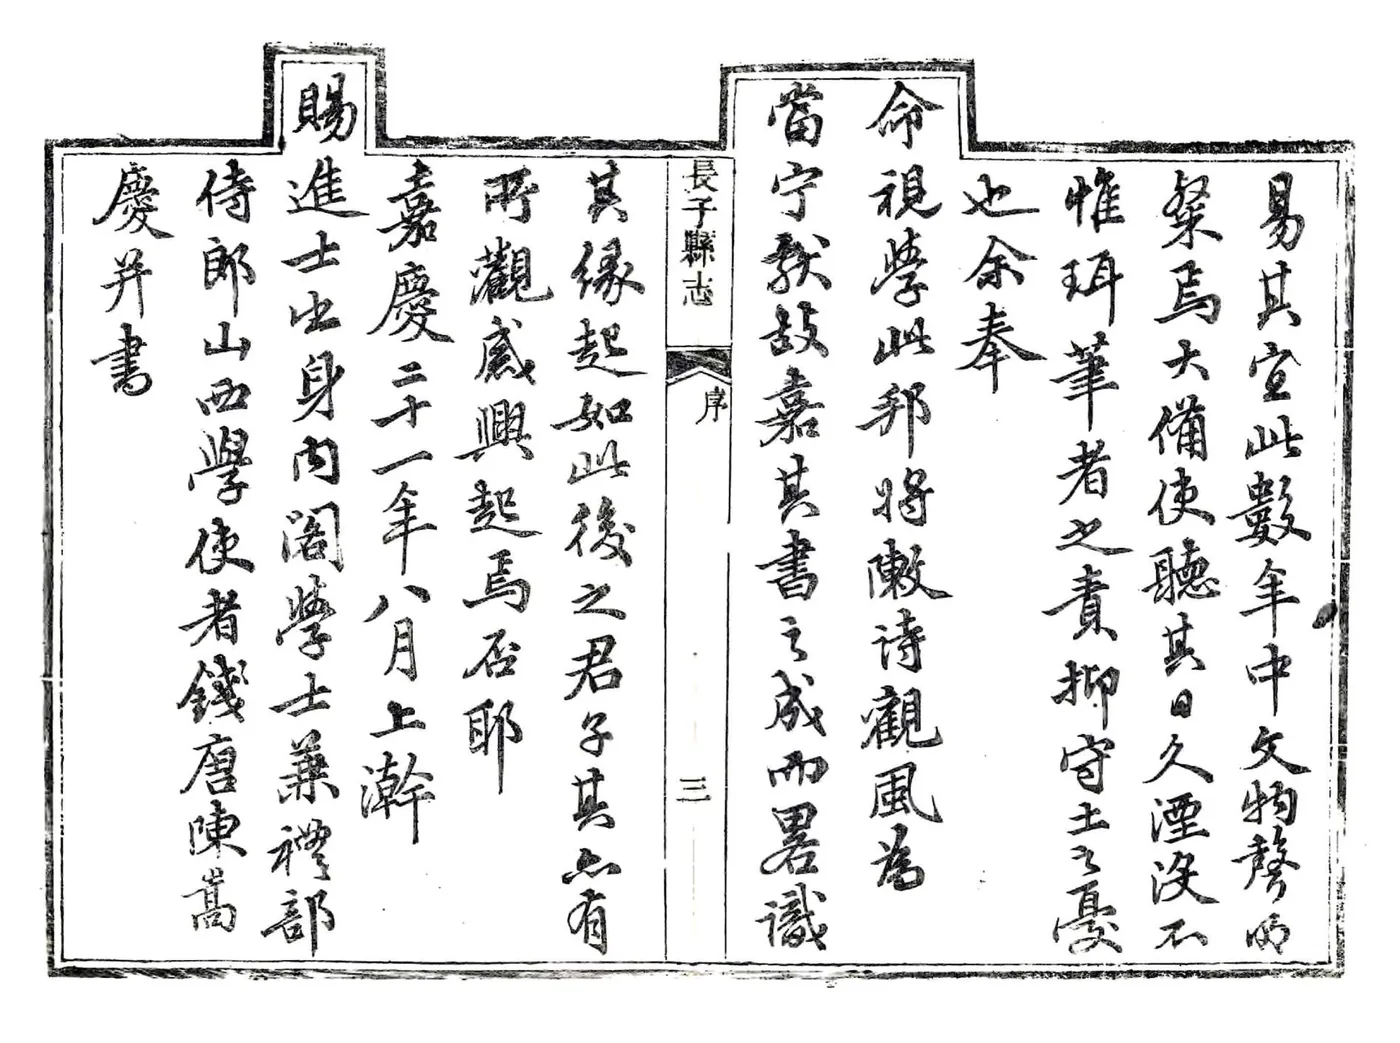 易其宜此數年中文物聲明
粲焉大備使聽其日久湮沒不
惟珥筆者之責抑守土之憂
也余奉
命視學此邦將陳詩觀風為
當宁獻故嘉其書之成而畧識
長子縣志
序
三
其緣起如此後之君子其亦有
所觀感興起焉否耶
嘉慶二十一年八月上澣
賜進士出身內閣學士兼禮部
侍郎山西學使者錢唐陳嵩
慶并書